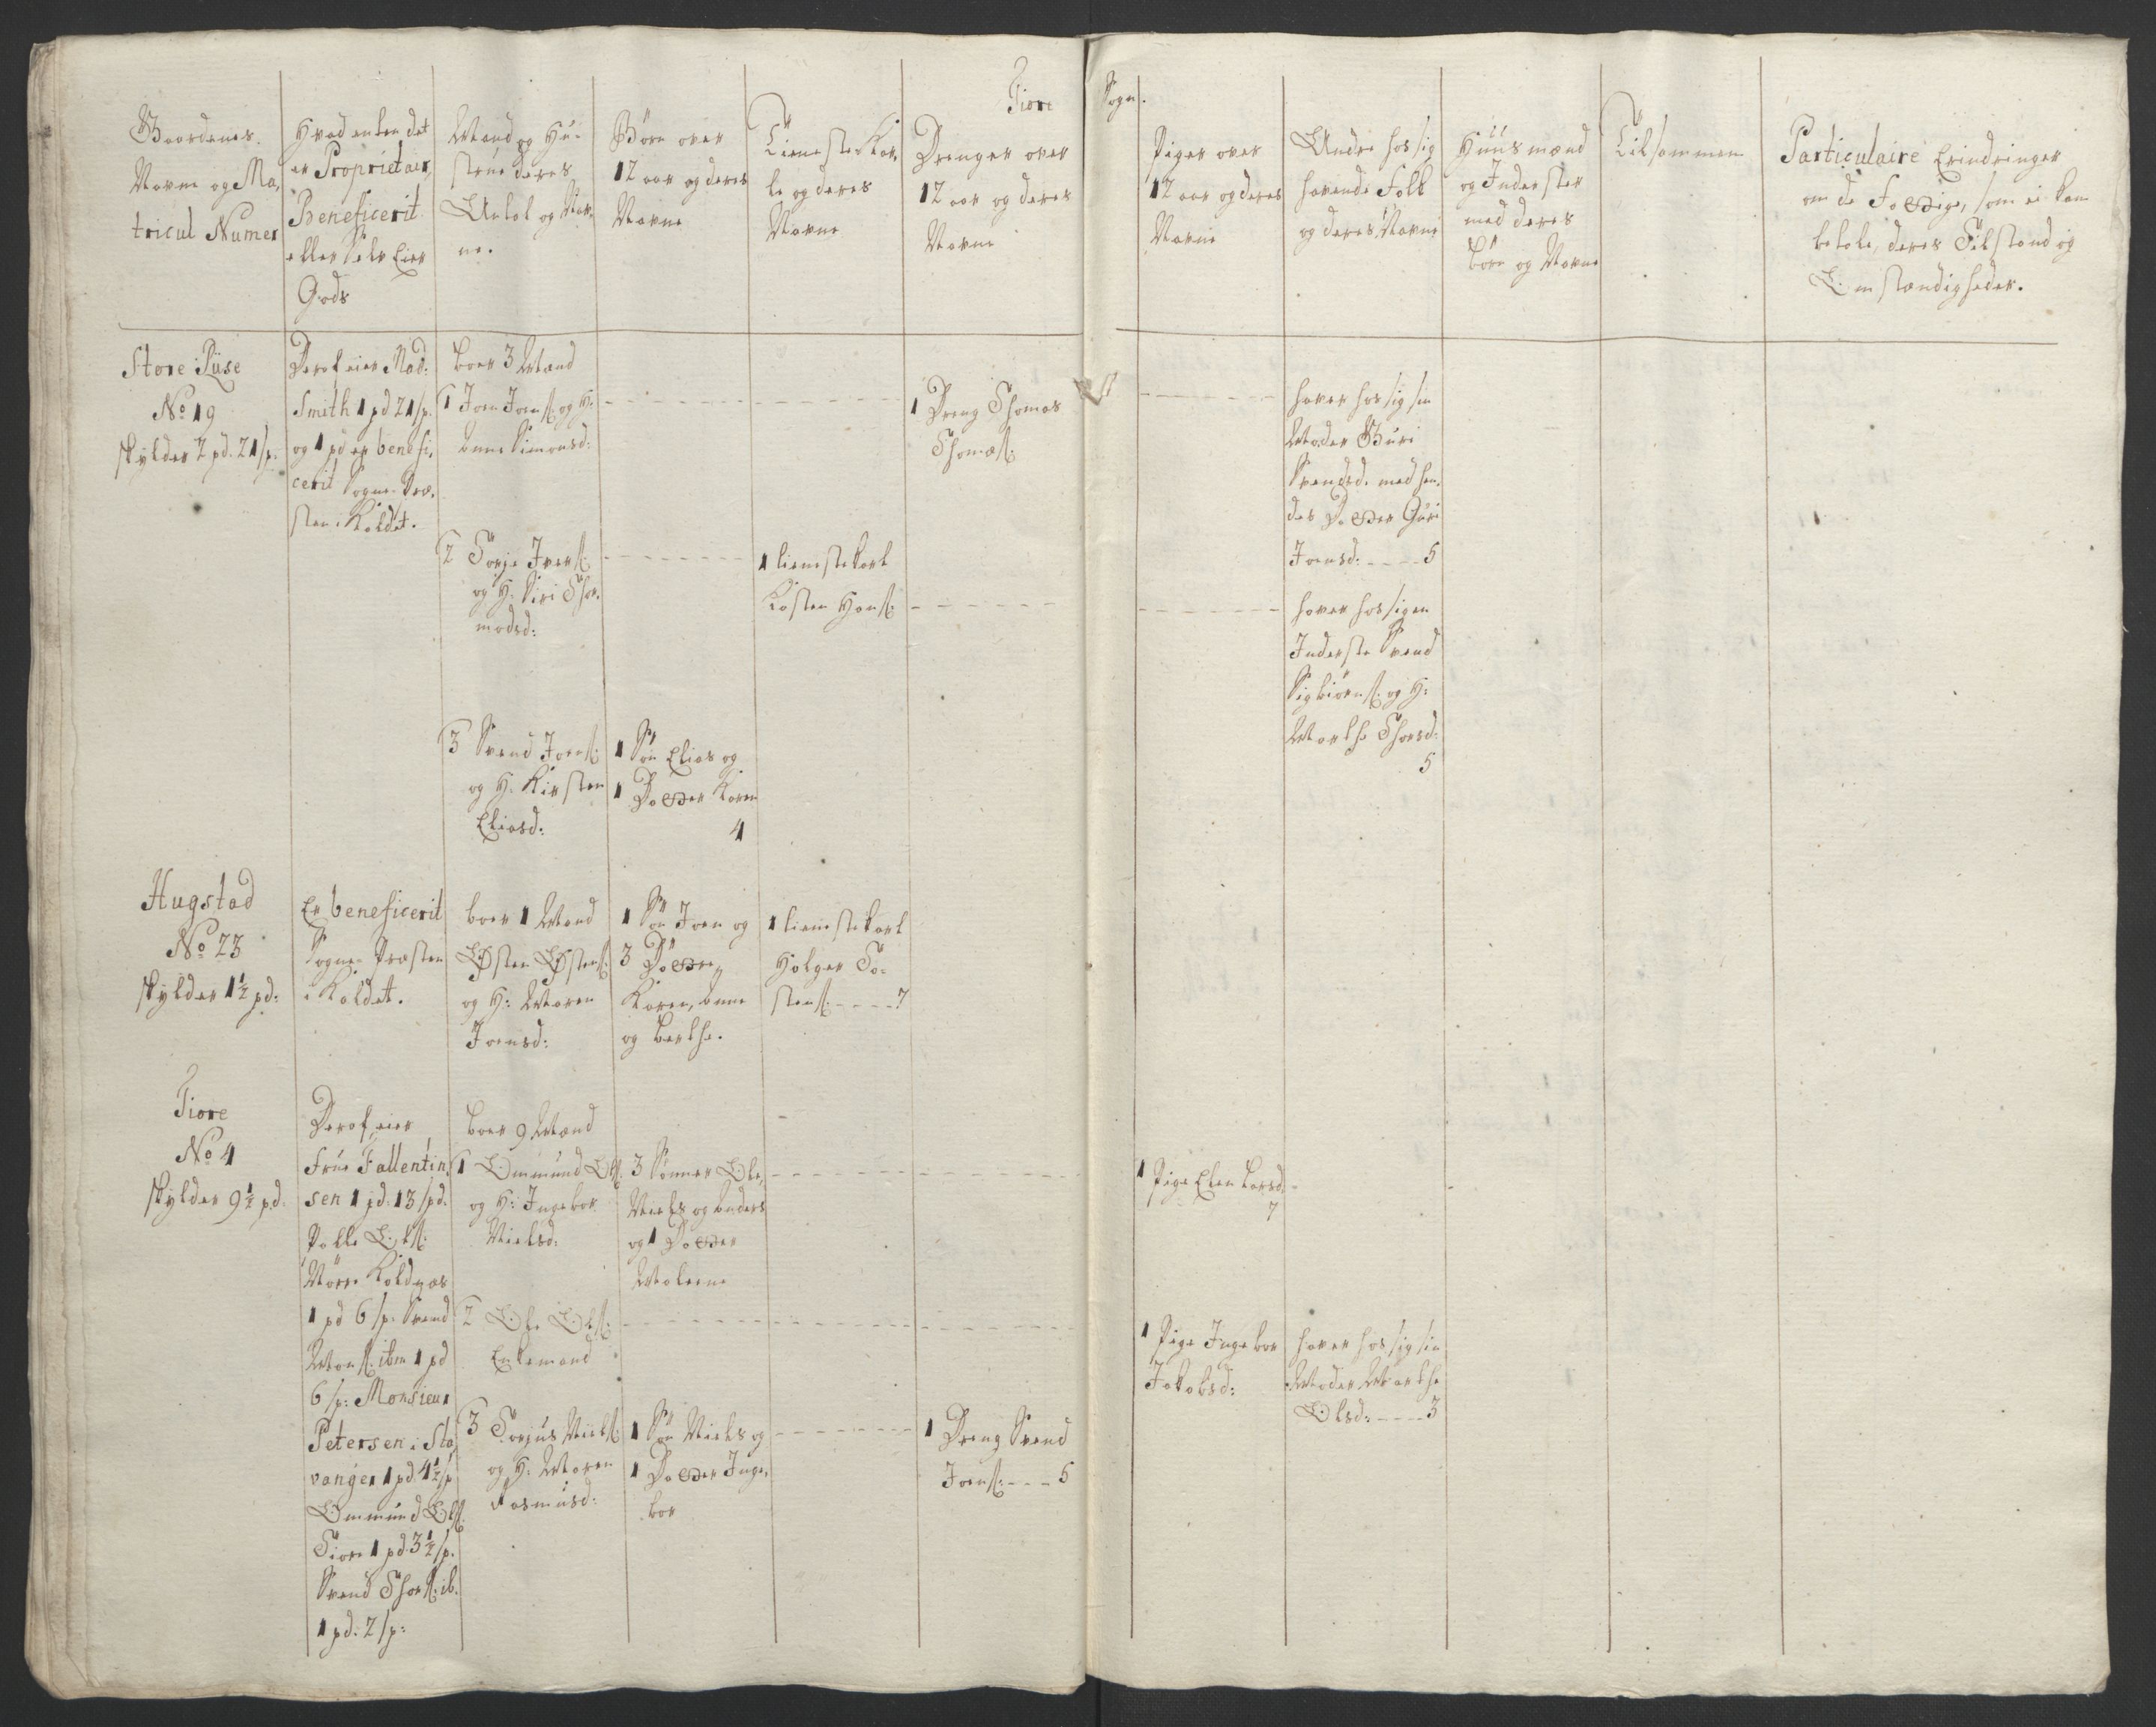 Tiore Sogn.
Gaardenes
Navne og Ma-
tricul Numer
Hvad enten det
er Proprietair,
Beneficerit
eller Selv Eier
Gods
Mand og Hu-
strue deres
Antal og Nav-
ne.
Börn over
12 aar og deres
Navne
Tieneste Kar-
le og deres
Navne
Drenger over
12 aar og deres
Navne
Piger over
12 aar og deres
Navne
Andre hos sig
havende Folk
og deres Navne
Huusmænd
og Inderster
med deres
börn og Navne
Tilsammen
Particulaire Erindringer
om de Fattige, som ei kan
betale, deres Tilstand og
Omstændigheder.
Store Tüse
No 19
skylder 2 pd. 21 sp.
Deraf eier Mad:
Smith 1 pd 21 sp.
og 1 pd er benefi-
cerit Sogne-Præ-
sten i Haldet.
boer 3 Mænd
1 Joen Joens: og H:
Anne Simonsd:
1 Dreng Thomas
Thomæs:
haver hos sig sin
Moder Guri
Svendsd. med hen-
des Datter Guri
Joensd: - - - - 5
2 Torje Ivers:
og H: Siri Thor-
modsd:
1 tienistekarl
Tosten Hans:
haver hos sig en
Inderste Svend
Sigbiörns: og H:
Marthe Thorsd:
5
3 Svend Joens:
og H: Kirsten
Eliasd:
1 Sön Elias og
1 Datter Karen
4
Hugstad
No 23
skylder 1½ pd:
Er beneficerit
Sogne-Præsten
i Haldet.
boer 1 Mand
Østen Østens:
og H: Maren
Joensd:
1 Sön Joen og
3 Döttre,
Karen, Anne
og Berthe.
1 tienistekarl
Holger To-
stens: - - - - 7
Tiore
No 4
skylder 9½ pd.
Deraf eier
Frue Fallentin-
sen 1 pd. 13 spd.
Palle Ols:
Nörre Koldnæs
1 pd 6 sp: Svend
Mons: ibm 1 pd
6 sp: Monsieur
Petersen i Sta-
vanger 1 pd 4½ sp
Ommund Ols:
Tiore 1 pd. 3½ sp.
Svend Thors: ib.
1 pd. 2 sp:
boer 9 Mænd
1 Ommund Ols:
og H: Ingebor
Nielsd:
3 Sönner Ole,
Niels og Anders
og 1 Datter
Malene
1 Pige Elen Larsd:
7
2 Ole Ols:
Enkemand
1 Pige Ingebor
Jakobsd:
haver hos sig sin
Moder Marthe
Olsd: - - - - 3
3 Torjus Niels:
og H: Maren
Rasmusd:
1 Sön Niels og
1 Datter Inge-
bor
1 Dreng Svend
Joens: - - - 5